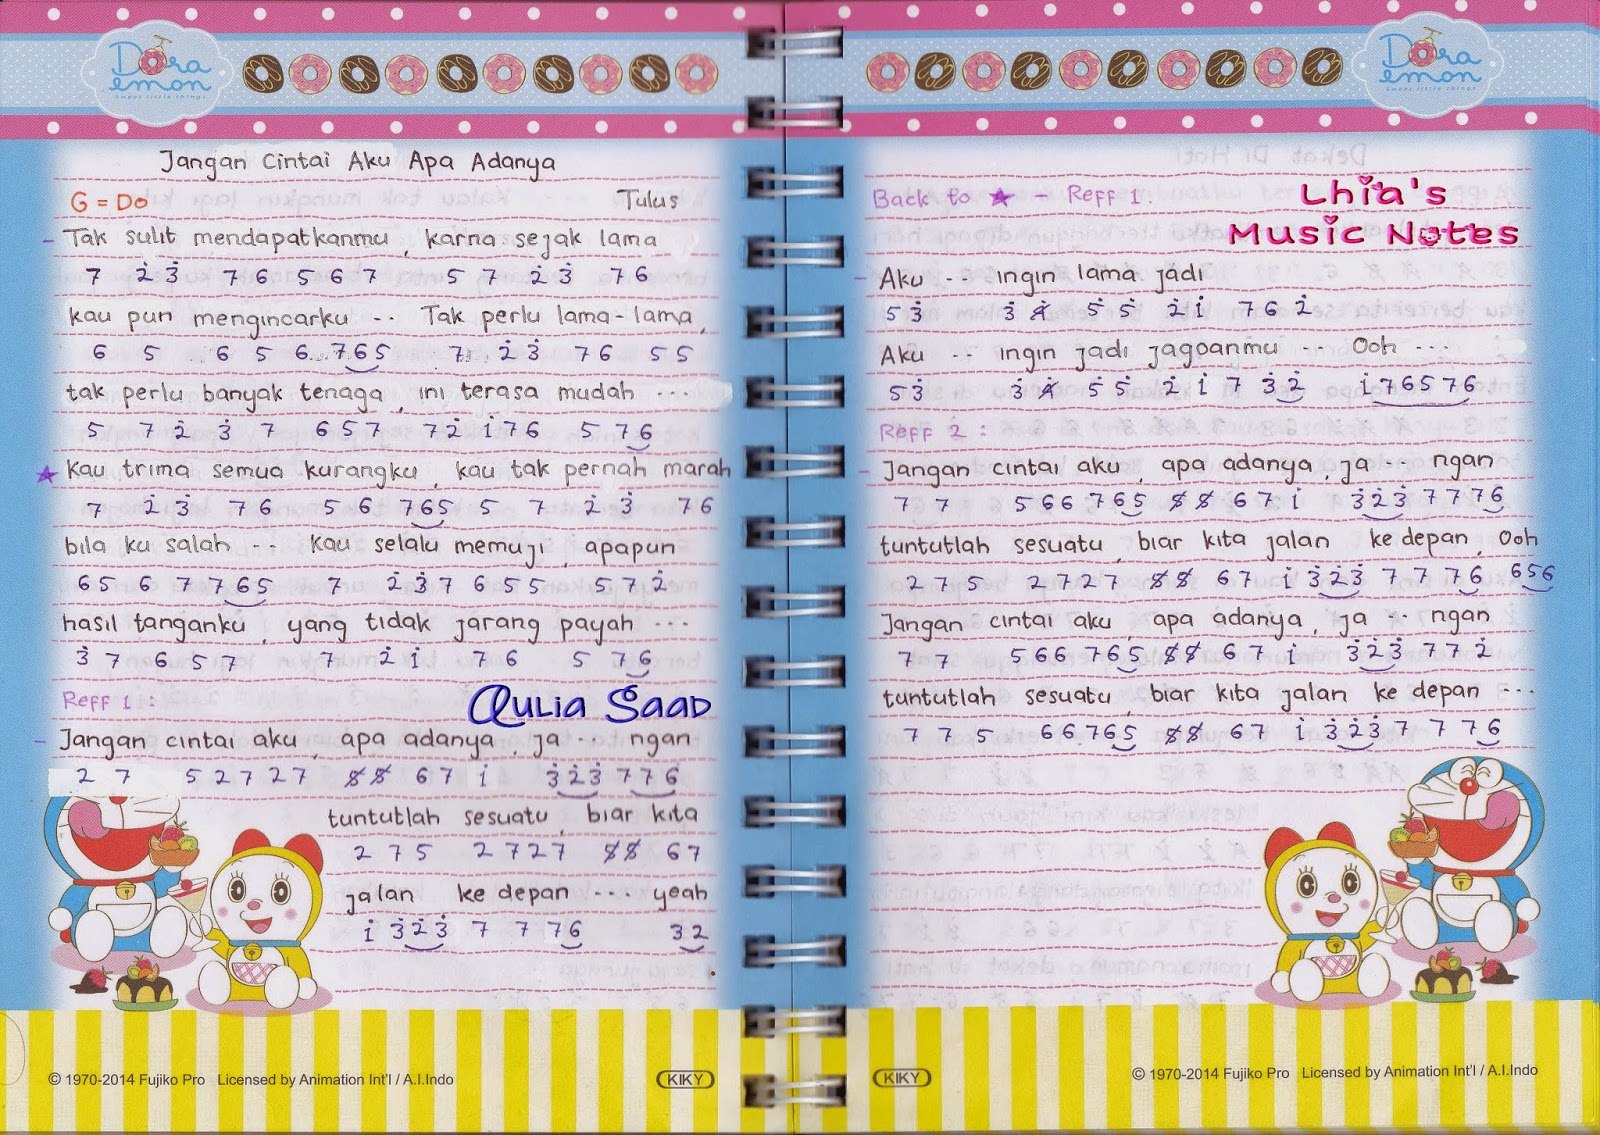 Dora
emon
sweet little things
Jangan Cintai Aku Apa Adanya
G = Do Tulus
- Tak sulit mendapatkanmu, karna sejak lama
7 2̇ 3̇ 7 6 5 6 7 5 7 2̇ 3̇ 7 6
kau pun mengincarku .. Tak perlu lama-lama,
6 5 6 5 6 .. 7 6 5 7 .. 2̇ 3̇ 7 6 5 5
tak perlu banyak tenaga, ini terasa mudah ...
5 7 2̇ 3̇ 7 6 5 7 7 2̇ 1̇ 7 6 5 7 6
★ Kau trima semua kurangku, kau tak pernah marah
7 2̇ 3̇ 7 6 5 6 7 6 5 5 7 2̇ 3̇ 7 6
bila ku salah .. kau selalu memuji, apapun
6 5 6 7 7 6 5 7 2̇ 3̇ 7 6 5 5 5 7 2̇
hasil tanganku, yang tidak jarang payah ...
3̇ 7 6 5 7 7 2̇ 1̇ 7 6 5 7 6
Reff 1 : Aulia Saad
- Jangan cintai aku, apa adanya, ja .. ngan
2 7 5 2 7 2 7 8̸ 8̸ 6 7 1̇ 3̇ 2̇ 3̇ 7 7 6
tuntutlah sesuatu, biar kita
2 7 5 2 7 2 7 8̸ 8̸ 6 7
jalan ke depan ... yeah
1̇ 3̇ 2̇ 3̇ 7 7 7 6 3 2
© 1970-2014 Fujiko Pro Licensed by Animation Int'l / A.I.Indo
KIKY
Dora
emon
sweet little things
Back to ★ - Reff 1.
Lhia's
Music Notes
- Aku .. ingin lama jadi
5 3̇ 3̇ 4̸̇ 5̇ 5̇ 2̇ 1̇ 7 6 2̇
Aku .. ingin jadi jagoanmu .. Ooh ...
5 3̇ 3̇ 4̸̇ 5̇ 5̇ 2̇ 1̇ 7 3̇ 2̇ 1̇ 7 6 5 7 6
Reff 2 :
- Jangan cintai aku, apa adanya, ja .. ngan
7 7 5 6 6 7 6 5 8̸ 8̸ 6 7 1̇ 3̇ 2̇ 3̇ 7 7 7 6
tuntutlah sesuatu, biar kita jalan ke depan, Ooh
2 7 5 2 7 2 7 8̸ 8̸ 6 7 1̇ 3̇ 2̇ 3̇ 7 7 7 6 6 5 6
Jangan cintai aku, apa adanya, ja .. ngan
7 7 5 6 6 7 6 5 8̸ 8̸ 6 7 1̇ 3̇ 2̇ 3̇ 7 7 2̇
tuntutlah sesuatu, biar kita jalan ke depan ...
7 7 5 6 6 7 6 5 8̸ 8̸ 6 7 1̇ 3̇ 2̇ 3̇ 7 7 7 6
KIKY
© 1970-2014 Fujiko Pro Licensed by Animation Int'l / A.I.Indo